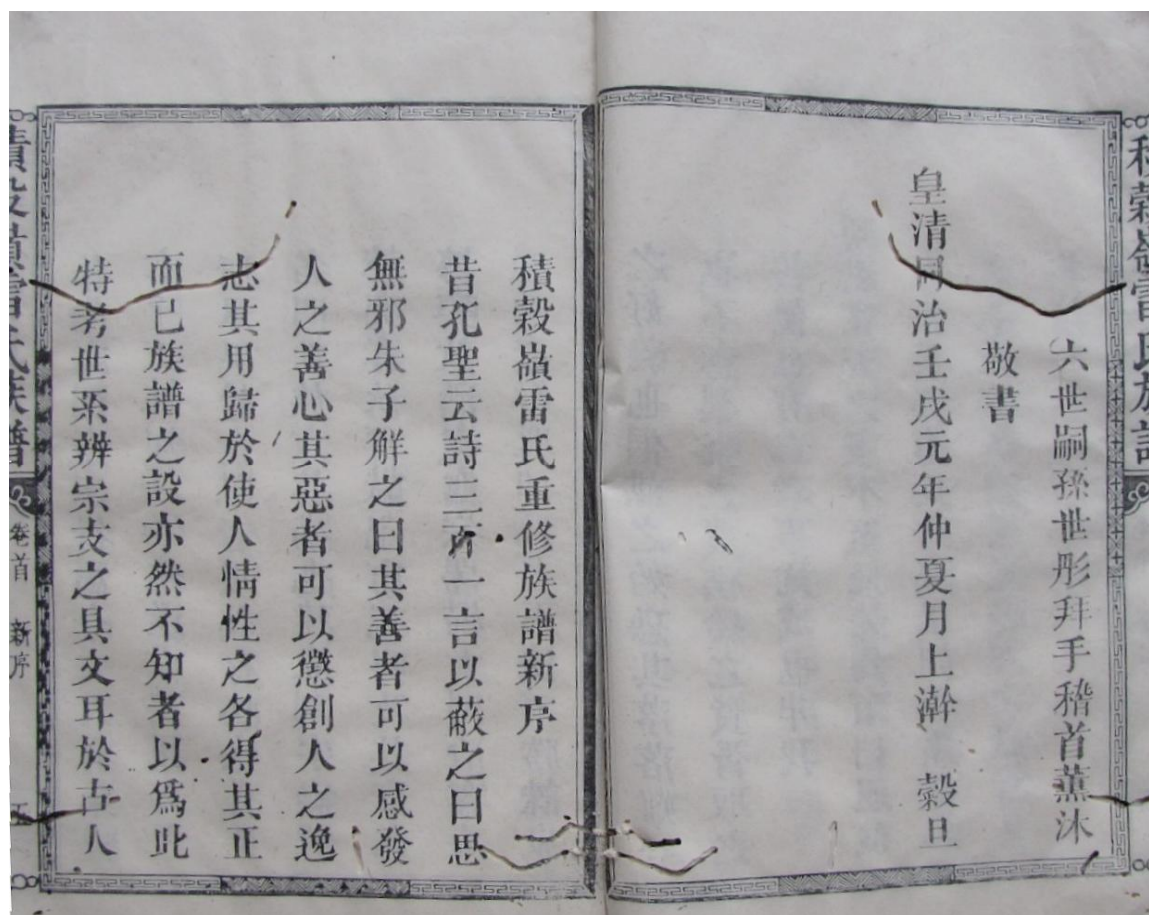 積穀嶺雷氏族譜
六世嗣孫世彤拜手稽首薰沐
敬書
皇清同治壬戌元年仲夏月上澣 穀旦
積穀嶺雷氏重修族譜新序
昔孔聖云詩三百一言以蔽之曰思
無邪朱子解之曰其善者可以感發
人之善心其惡者可以懲創人之逸
志其用歸於使人情性之各得其正
而已族譜之設亦然不知者以爲此
特考世系辨宗支之具文耳於古人
積穀嶺雷氏族譜 卷首 新序 五